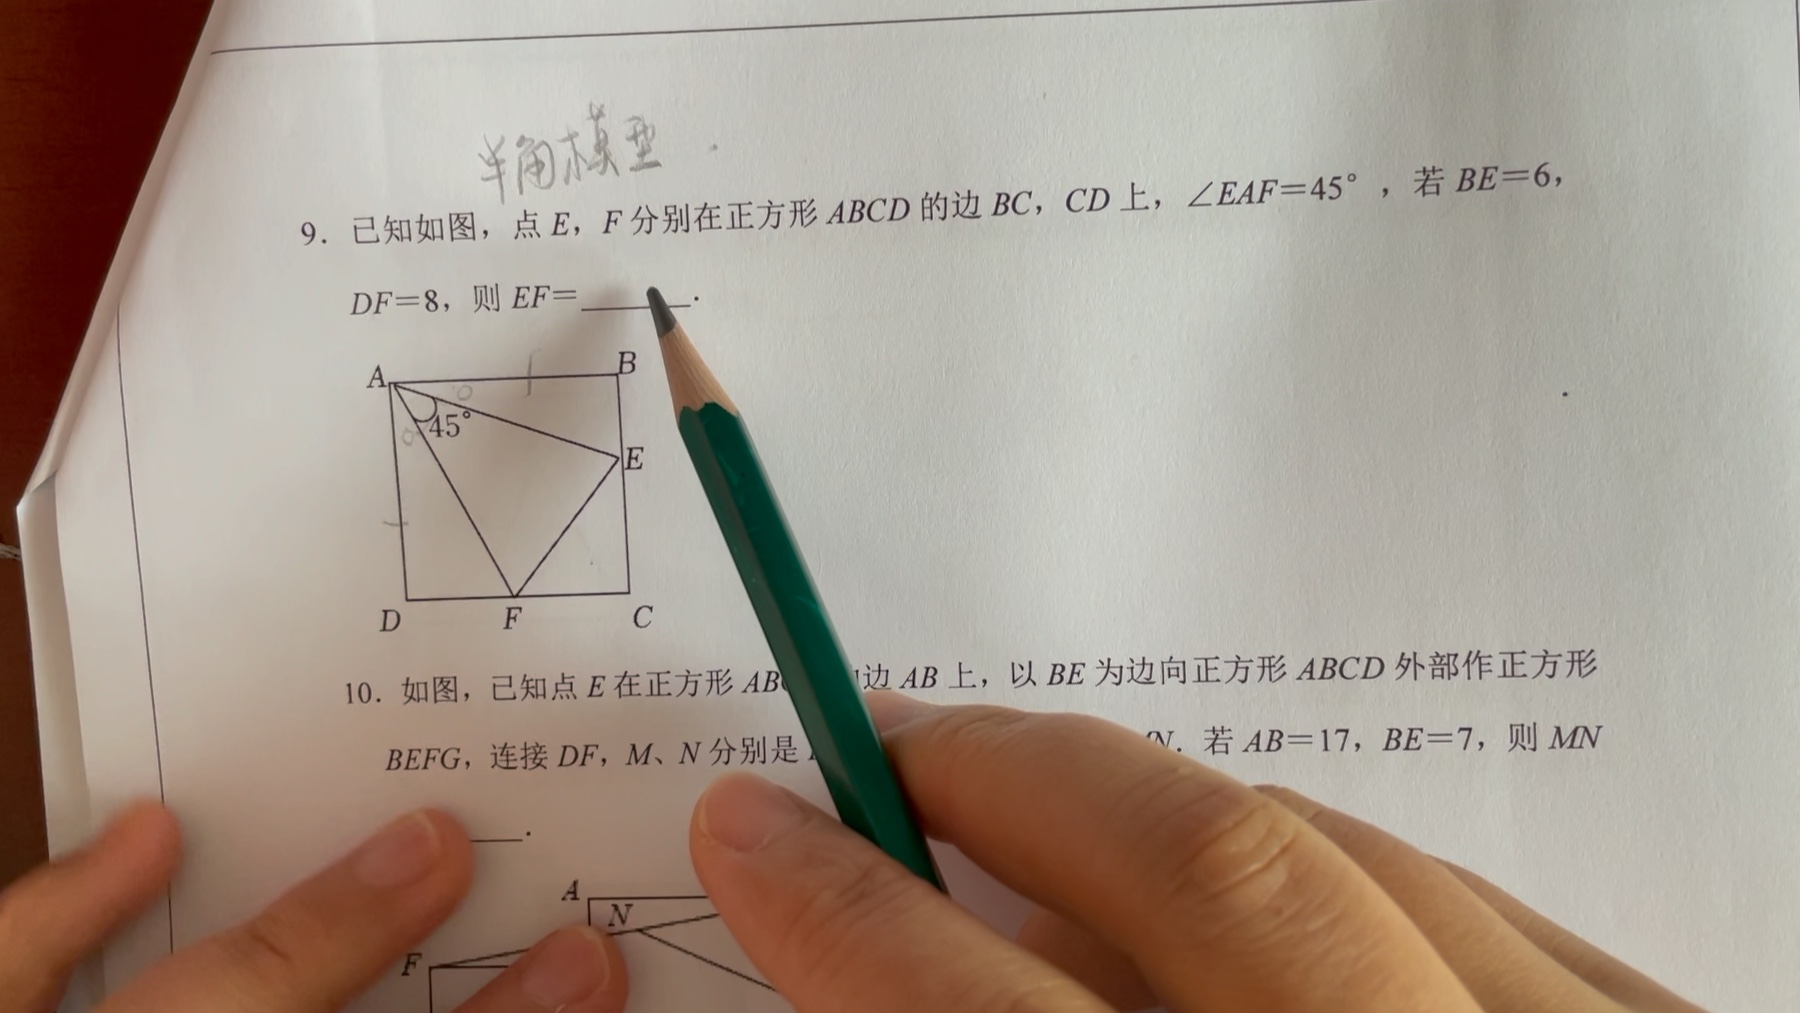 半角模型
9. 已知如图，点 E，F 分别在正方形 ABCD 的边 BC，CD 上，∠EAF=45°，若 BE=6，
DF=8，则 EF=______.
A B
45°
E
D F C
10. 如图，已知点 E 在正方形 AB 边 AB 上，以 BE 为边向正方形 ABCD 外部作正方形
BEFG，连接 DF，M、N 分别是 N. 若 AB=17，BE=7，则 MN
____.
A
N
F